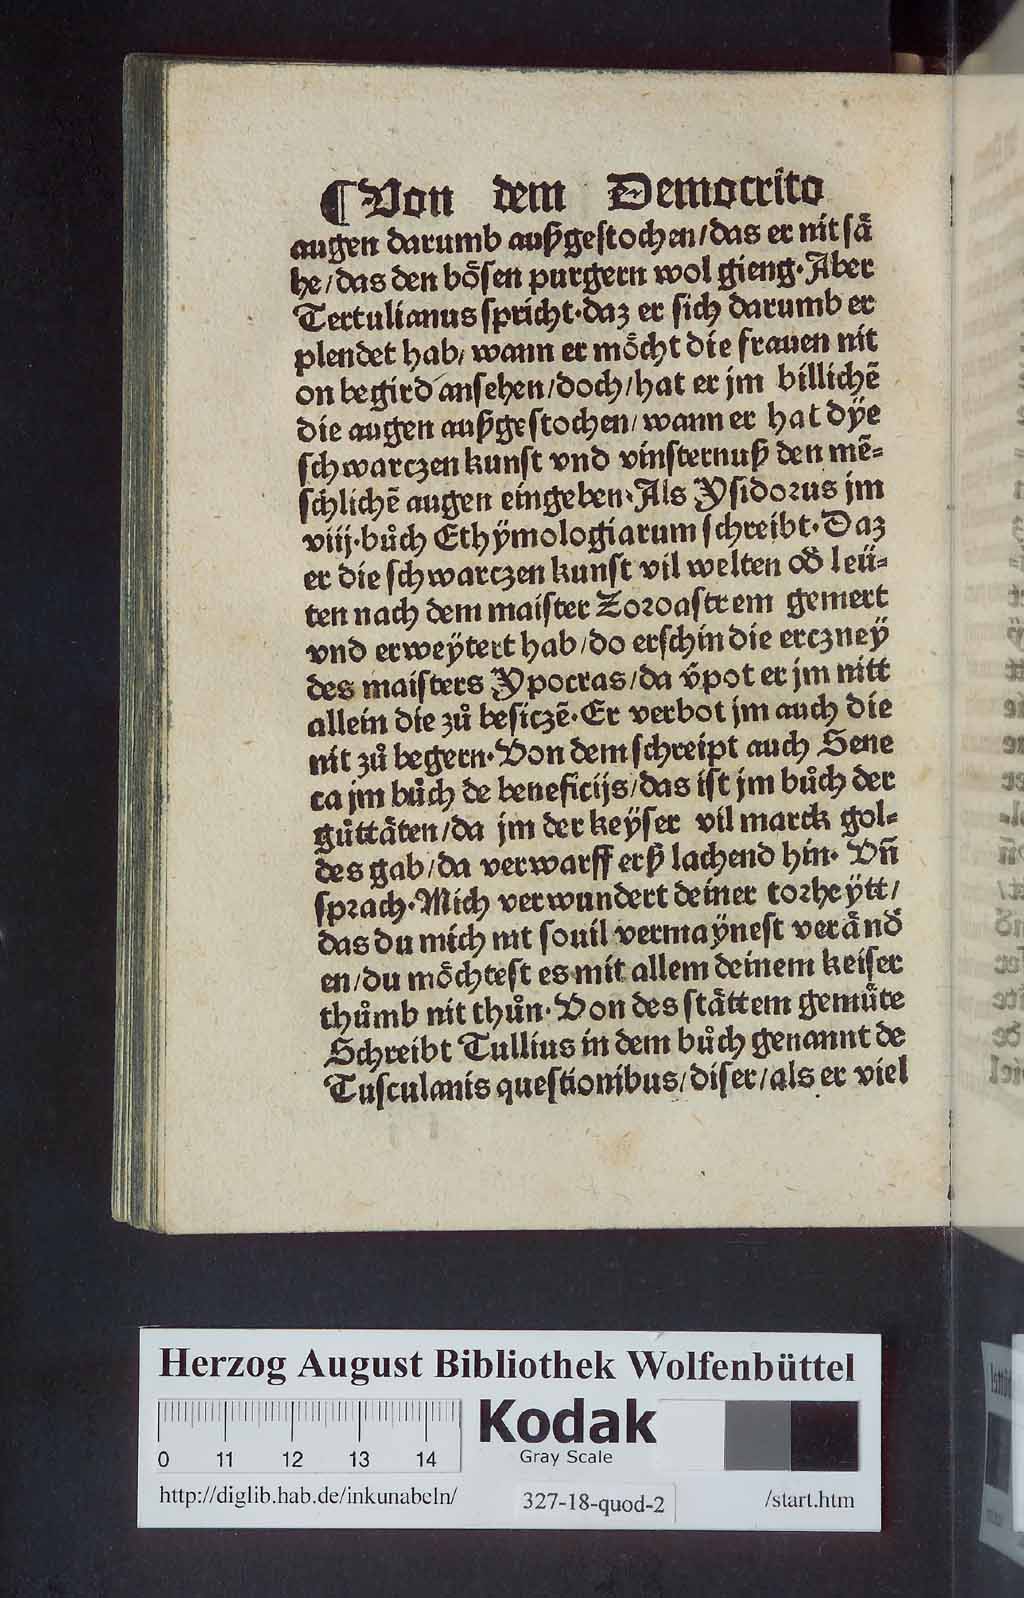 ¶Von dem Democrito
augen darumb außgestochen/das er nit sä
he/das den bösen purgern wol gieng. Aber
Tertulianus spricht.daz er sich darumb er
plendet hab/ wann er möcht die frauen nit
on begird ansehen/doch/hat er jm billichē
die augen außgestochen/wann er hat dÿe
schwarczen kunst vnd vinsternuß den mē=
schlichē augen eingeben.Als Ysidorus jm
viij.bůch Ethÿmologiarum schreibt.Daz
er die schwarczen kunst vil welten od̕ leü=
ten nach dem maister Zoroastrem gemert
vnd erweÿtert hab/do erschin die ercznеÿ
des maisters Ypocras/da v̄pot er jm nitt
allein die zů besiczē.Er verbot jm auch die
nit zů begern.Von dem schreipt auch Sene
ca jm bůch de beneficijs/das ist jm bůch der
gůttäten/da jm der keÿser vil marck gol=
des gab/da verwarff erß lachend hin. Vn̄
sprach.Mich verwundert deiner torheÿtt/
das du mich nit souil vermaÿnest veränd̕
en/du möchtest es mit allem deinem keiser
thůmb nit thůn.Von des stättem gemůte
Schreibt Tullius in dem bůch genannt de
Tusculanis questionibus/diser/als er viel
Herzog August Bibliothek Wolfenbüttel
0 11 12 13 14
Kodak
Gray Scale
http://diglib.hab.de/inkunabeln/ 327-18-quod-2 /start.htm